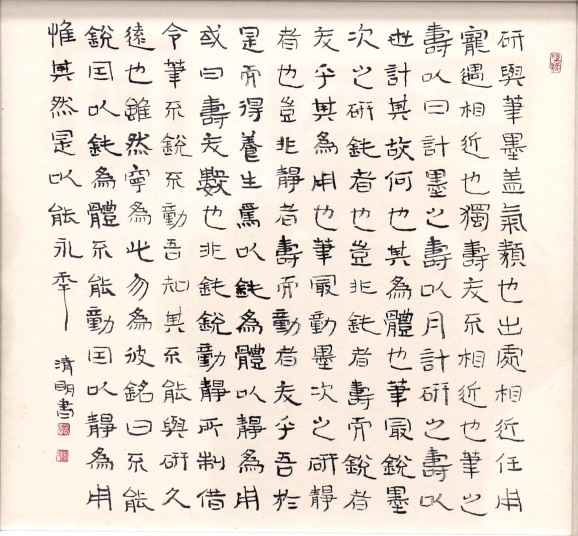 研與筆墨盖氣類也出處相近任用
寵遇相近也獨壽夭不相近也筆之
壽以日計墨之壽以月計研之壽以
世計其故何也其為體也筆最銳墨
次之研鈍者也豈非鈍者壽而銳者
夭乎其為用也筆最動墨次之研靜
者也豈非靜者壽而動者夭乎吾於
是而得養生焉以鈍為體以靜為用
或曰壽夭數也非鈍銳動靜所制借
令筆不銳不動吾知其不能與研久
遠也雖然寧為此勿為彼銘曰不能
銳因以鈍為體不能動因以靜為用
惟其然是以能永年
清明書